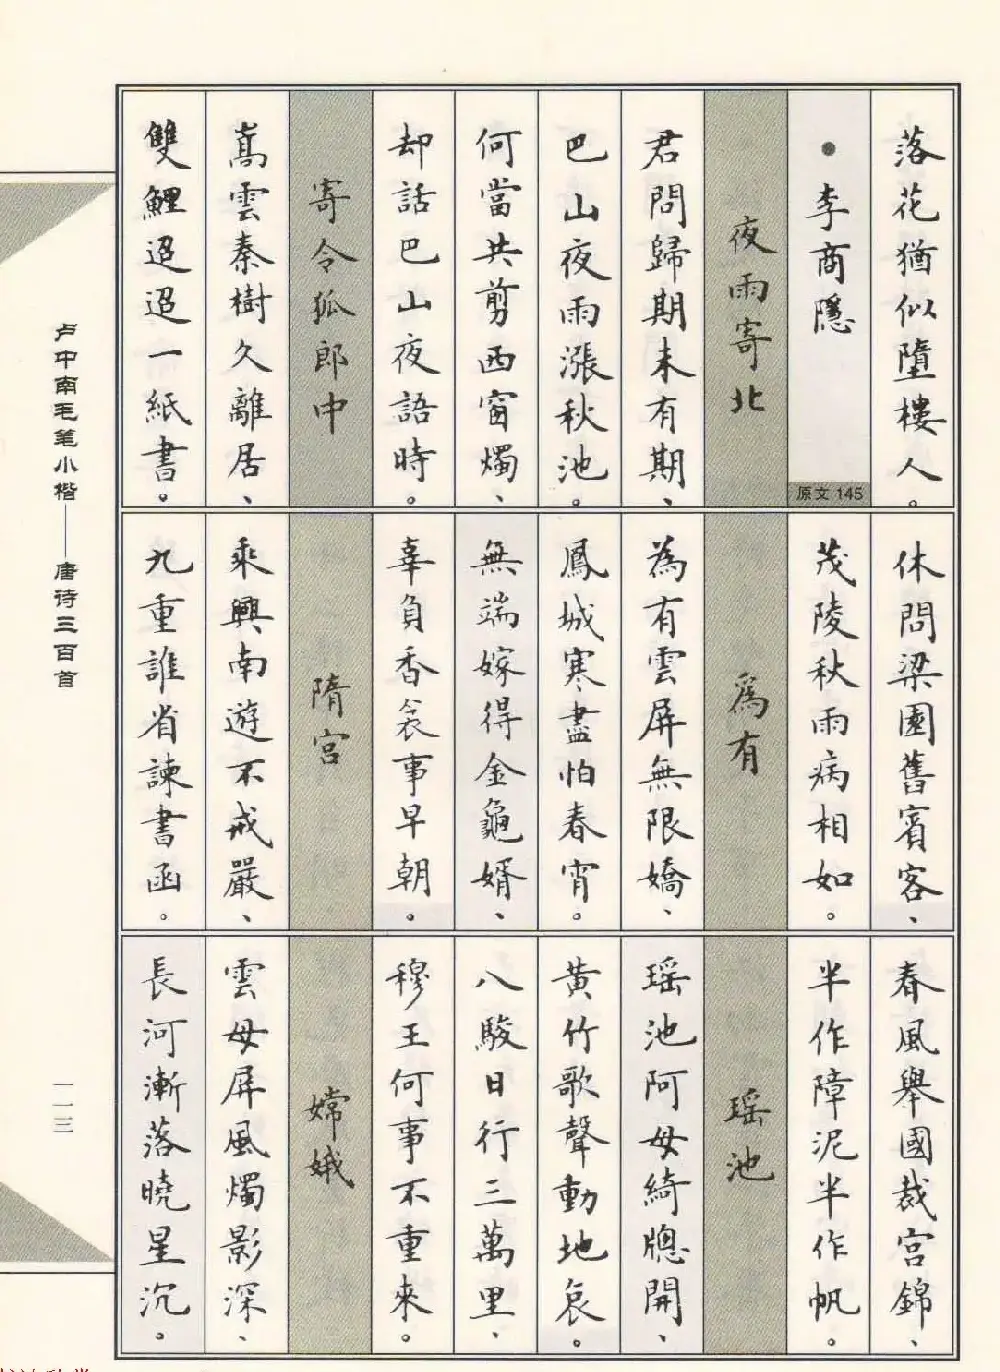 落花猶似墮樓人。
•李商隱
原文 145
夜雨寄北
君問歸期未有期、
巴山夜雨漲秋池。
何當共剪西窗燭、
却話巴山夜語時。
寄令狐郎中
嵩雲秦樹久離居、
雙鯉迢迢一紙書。
休問梁園舊賓客、
茂陵秋雨病相如。
爲有
為有雲屏無限嬌、
鳳城寒盡怕春宵。
無端嫁得金龜婿、
辜負香衾事早朝。
隋宮
乘興南遊不戒嚴、
九重誰省諫書函。
春風舉國裁宮錦、
半作障泥半作帆。
瑶池
瑶池阿母綺牕開、
黃竹歌聲動地哀。
八駿日行三萬里、
穆王何事不重來。
嫦娥
雲母屏風燭影深、
長河漸落曉星沉。
卢中南毛笔小楷——唐诗三百首
一一三